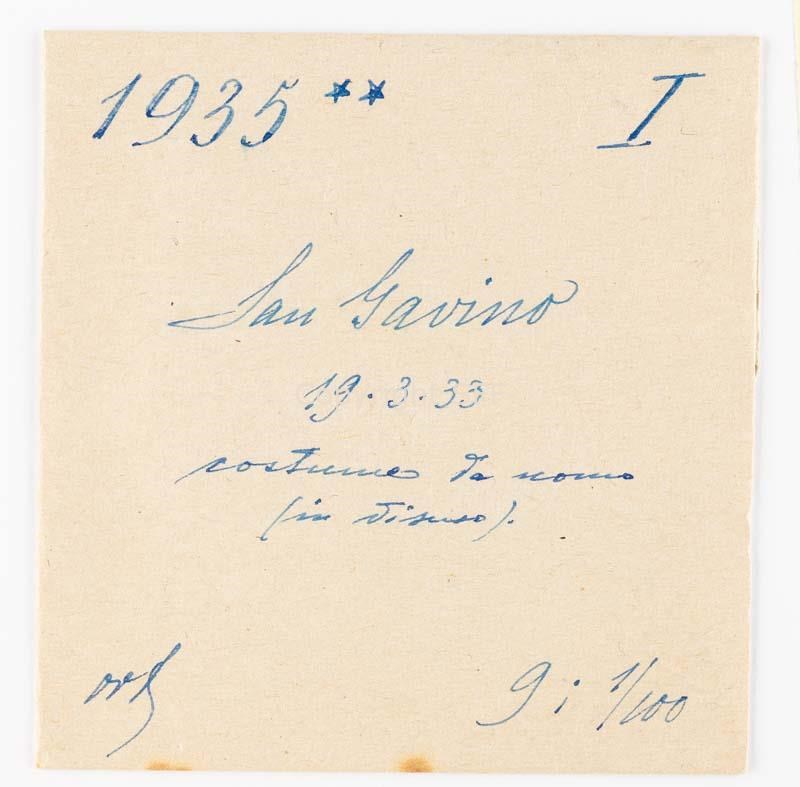 1935 ** I
San Gavino
19.3.33
costume da uomo
(in disuso).
9; 1/100